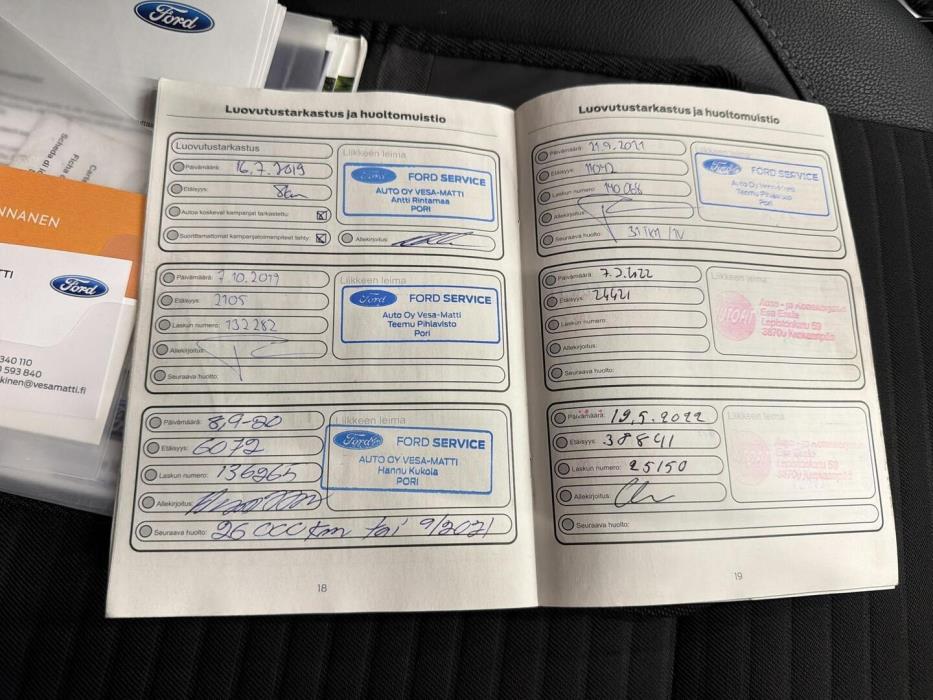 Ford
NNANEN
ATTI
Ford
340 110
593 840
kinen@vesamatti.fi
Luovutustarkastus ja huoltomuistio
Luovutustarkastus
Liikkeen leima
Päivämäärä: 16.7.2019
Etäisyys: 8km
Autoa koskevat kampanjat tarkastettu:
Suorittamattomat kampanjatoimenpiteet tehty:
Ford FORD SERVICE
AUTO OY VESA-MATTI
Antti Rintamaa
PORI
Allekirjoitus:
Päivämäärä: 7.10.2019
Etäisyys: 2105
Laskun numero: 132282
Allekirjoitus:
Seuraava huolto:
Liikkeen leima
Ford FORD SERVICE
Auto Oy Vesa-Matti
Teemu Pihlavisto
PORI
Päivämäärä: 8,9-20
Etäisyys: 6072
Laskun numero: 136965
Allekirjoitus:
Seuraava huolto: 26 000 km tai 9/2021
Liikkeen leima
Ford FORD SERVICE
AUTO OY VESA-MATTI
Hannu Kukola
PORI
18
Luovutustarkastus ja huoltomuistio
Päivämäärä: 21.9.2021
Etäisyys: 11042
Laskun numero: 140068
Allekirjoitus:
Seuraava huolto: 31 TKM / 1V
Liikkeen leima
Ford FORD SERVICE
Auto Oy Vesa-Matti
Teemu Pihlavisto
Pori
Päivämäärä: 7.2.2022
Etäisyys: 24421
Laskun numero:
Allekirjoitus:
Seuraava huolto:
Liikkeen leima
Esa Eskla
Lepistönkatu 59
Päivämäärä: 19.5.2022
Etäisyys: 38841
Laskun numero: 25150
Allekirjoitus:
Seuraava huolto:
Liikkeen leima
19